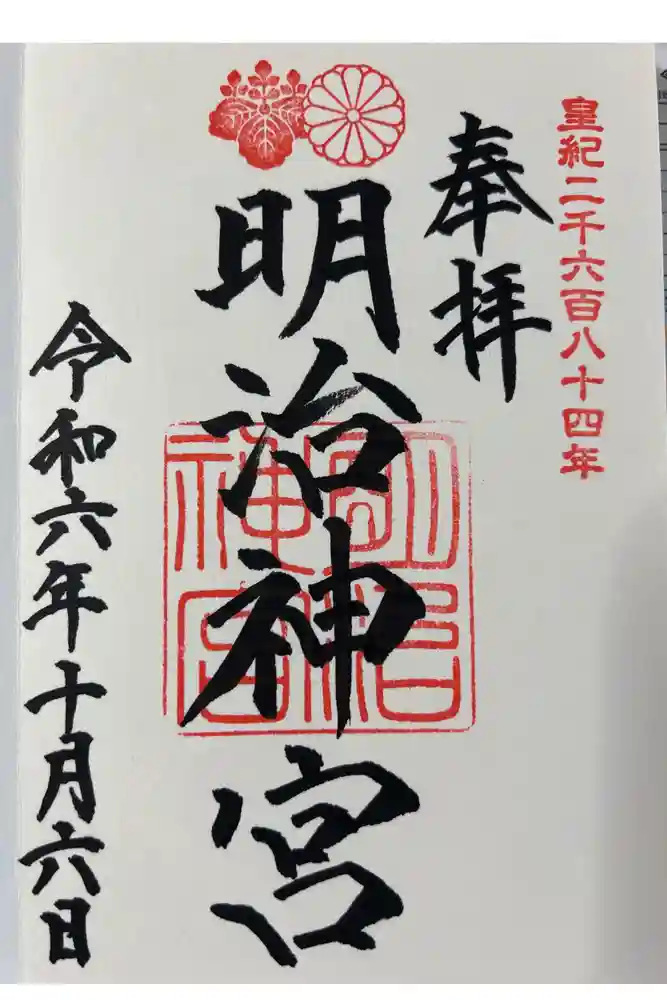 皇紀二千六百八十四年
奉拝
明治神宮
明治
神宮
令和六年十月六日